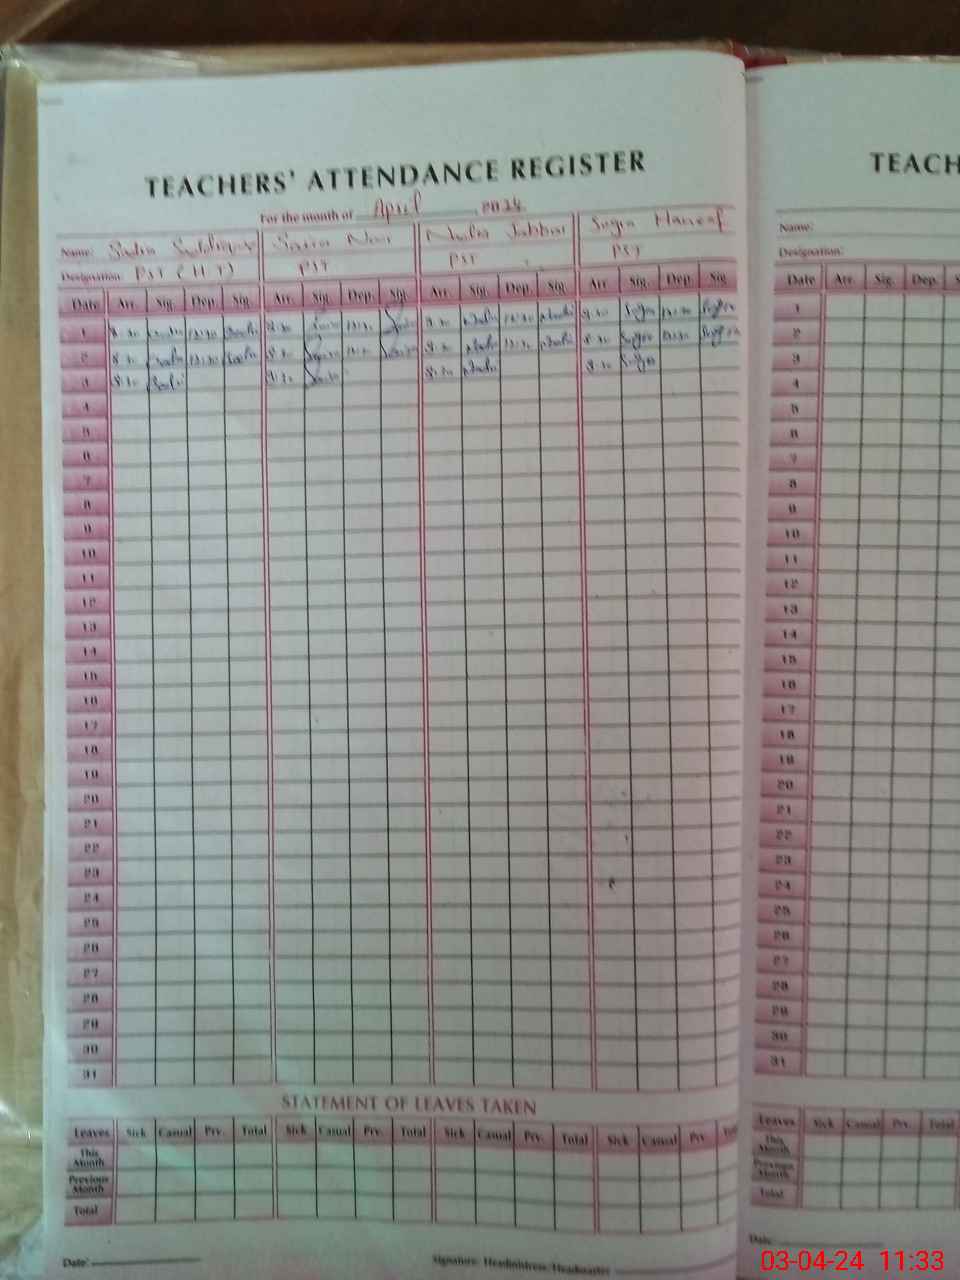 TEACHERS' ATTENDANCE REGISTER
For the month of April 2024
Name: Sadia Saira Noor Nadia Jabbar Sugra Haneef
Designation: PST (HT) PST PST PST
Date Arr. Sig. Dep. Sig. Arr. Sig. Dep. Sig. Arr. Sig. Dep. Sig. Arr. Sig. Dep. Sig
1 8:30 8:30 8:30 8:30
2 8:30 8:30 8:30 8:30
3 8:30 8:30 8:30 8:30
4
5
6
7
8
9
10
11
12
13
14
15
16
17
18
19
20
21
22
23
24
25
26
27
28
29
30
31
STATEMENT OF LEAVES TAKEN
Leaves Sick Casual Prv. Total Sick Casual Prv. Total Sick Casual Prv. Total Sick Casual Prv.
This
Month
Previous
Month
Total
Date: Signature Headmistress/Headmaster
TEACH
Name:
Designation:
Date Arr. Sig. Dep. S
1
2
3
4
5
6
7
8
9
10
11
12
13
14
15
16
17
18
19
20
21
22
23
24
25
26
27
28
29
30
31
Leaves Sick Casual Prv. Total
This
Month
Previous
Month
Total
Date
03-04-24 11:33